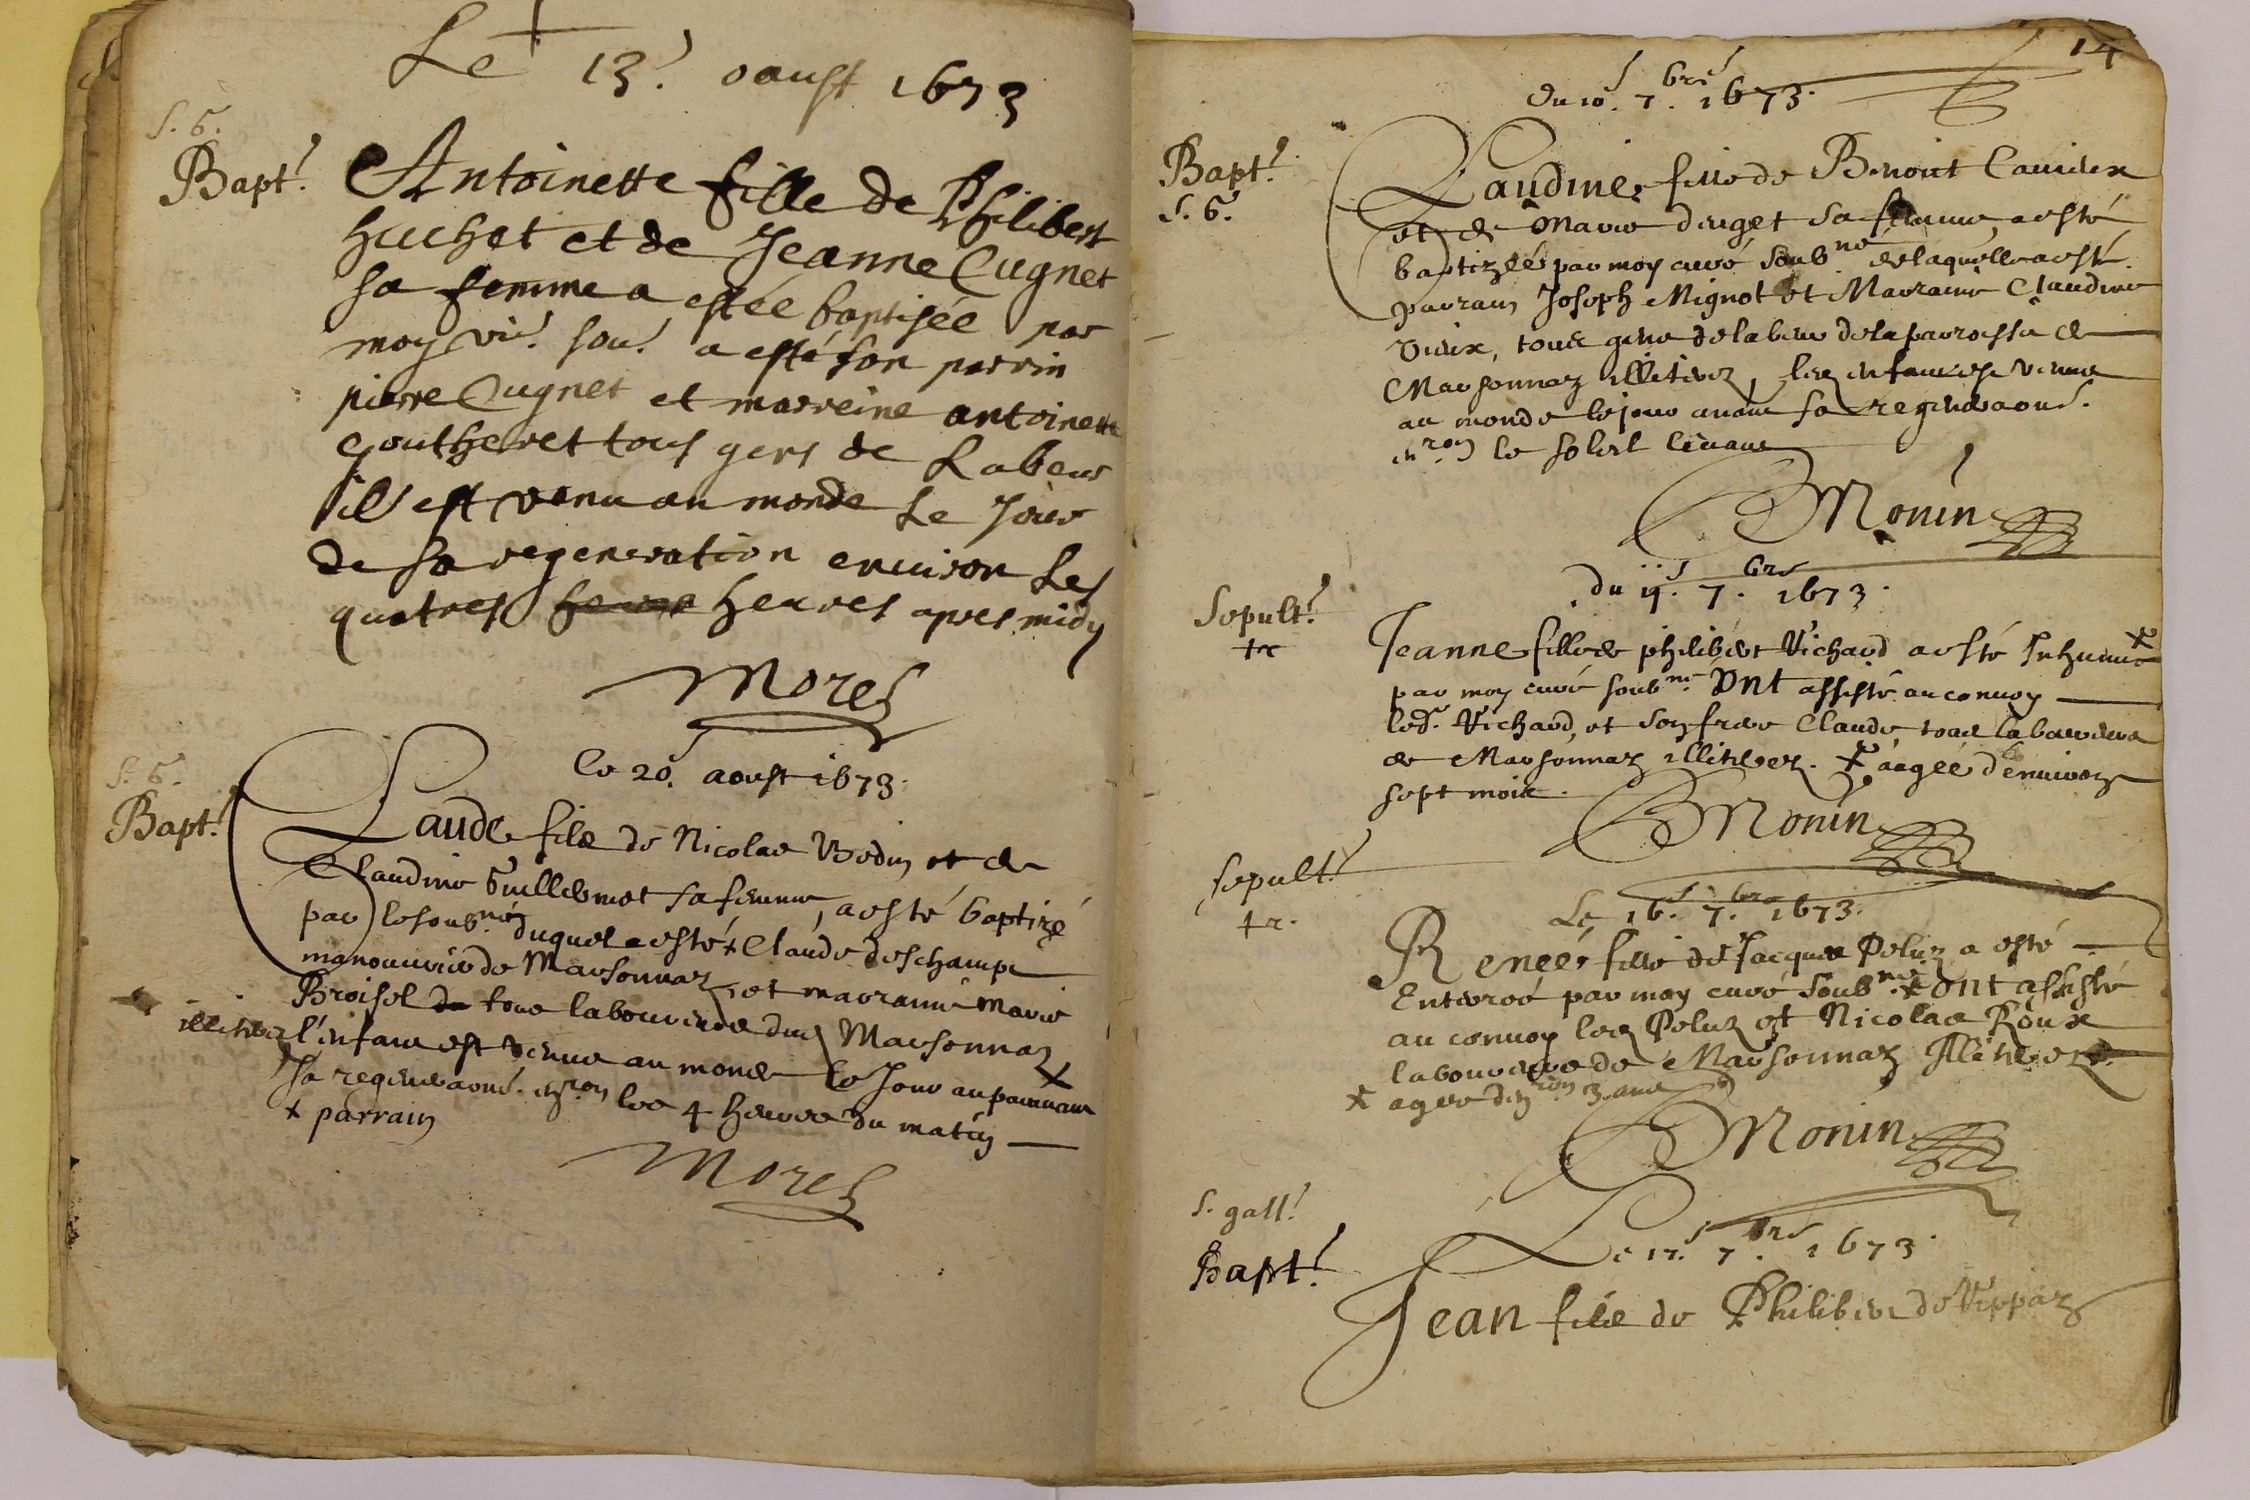 Le 13. oaust 1673
S. G.
Bapt.
Antoinette fille de Philibert
huchet et de Jeanne Cugnet
sa femme a estée baptisée par
moy vic. sou. a esté son parrin
pierre Cugnet et marreine antoinette
goutheret tous gens de Labeur
il est venu au monde Le Jour
de sa regeneration enuiron Les
quatres heures apres midy
Morel
le 20. aoust 1673.
S. G.
Bapt.
Claude filz de Nicolas Bodin et de
Claudine Guillemot sa femme, a esté baptizé
par le soub.né duquel a esté + Claude deschamps
manouurier de Marsonnaz, et marraine Marie
Broisel tous laboureurs dud Marsonnaz
illiterez l'enfant est venue au monde le Jour auparauant
sa regeneraōné. en.ron les 4 heures du matin
+ parrain
Morel
14
du 10. 7.bre 1673.
Bapt.
S. G.
Claudine, fille de Benoit Cauieux
et de Marie duget sa femme, a esté
baptizée par moy curé soub.né de laquelle a esté
parrain Joseph Mignot et Marraine Claudine
Vieux, tous gens de labeur de la parroisse de
Marsonnaz illiterez, les enfant est venue
au monde le jour auant sa regeneraōné.
en.ron le soleil leuant
Monin
du 11. 7.bre 1673.
Sepult.
+
Jeanne fille de philibert Vichard a esté Inhumée +
par moy curé soub.né Ont assisté au conuoy
led. Vichard, et son frere Claude, tous laboureurs
de Marsonnaz illiterez. + aagée d'enuiron
sept mois.
Monin
sepult.
+ r.
Le 16. 7.bre 1673.
Renée, fille de Jacques Peluz a esté
Enterreé par moy curé soub.né + Ont assisté
au conuoy les Peluz et Nicolas Roux
laboureurs de Marsonnaz Illiterez.
+ agee d'en.ron 3 ans
Monin
S. gall.
Bapt.
Le 17. 7.bre 1673.
Jean filz de Philibert de Vippaz